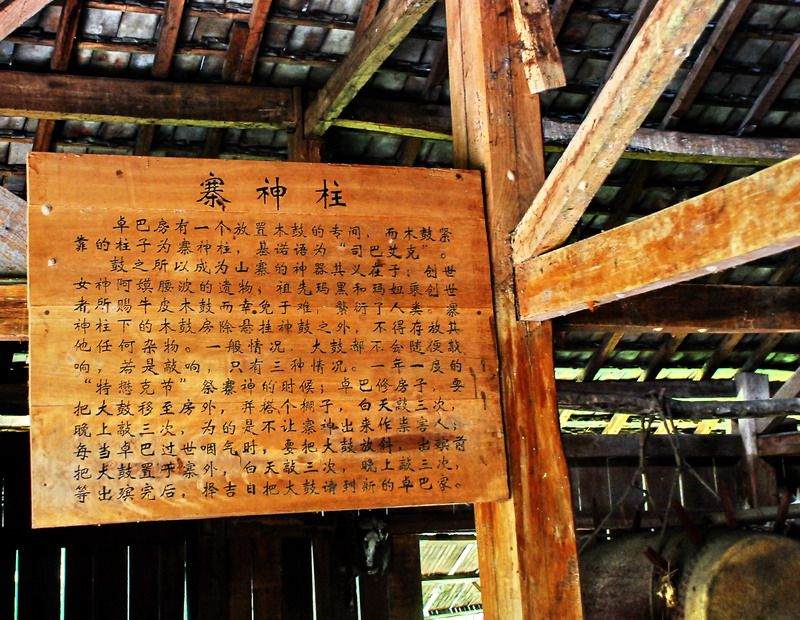 寨神柱
卓巴房有一个放置木鼓的专间，而木鼓紧
靠的柱子为寨神柱，基诺语为“司巴艾克”。
鼓之所以成为山寨的神器其义在于；创世
女神阿嫫腰波的遗物；祖先玛黑和玛妞乘创世
者所赐牛皮木鼓而幸免于难，繁衍了人类。寨
神柱下的木鼓房除悬挂神鼓之外，不得存放其
他任何杂物。一般情况，大鼓都不会随便敲
响，若是敲响，只有三种情况。一年一度的
“特懋克节”祭寨神的时候；卓巴修房子，要
把大鼓移至房外，并搭个棚子，白天敲三次，
晚上敲三次，为的是不让寨神出来作祟害人；
每当卓巴过世咽气时，要把大鼓放斜，出殡前
把大鼓置于寨外，白天敲三次，晚上敲三次，
等出殡完后，择吉日把大鼓请到新的卓巴家。